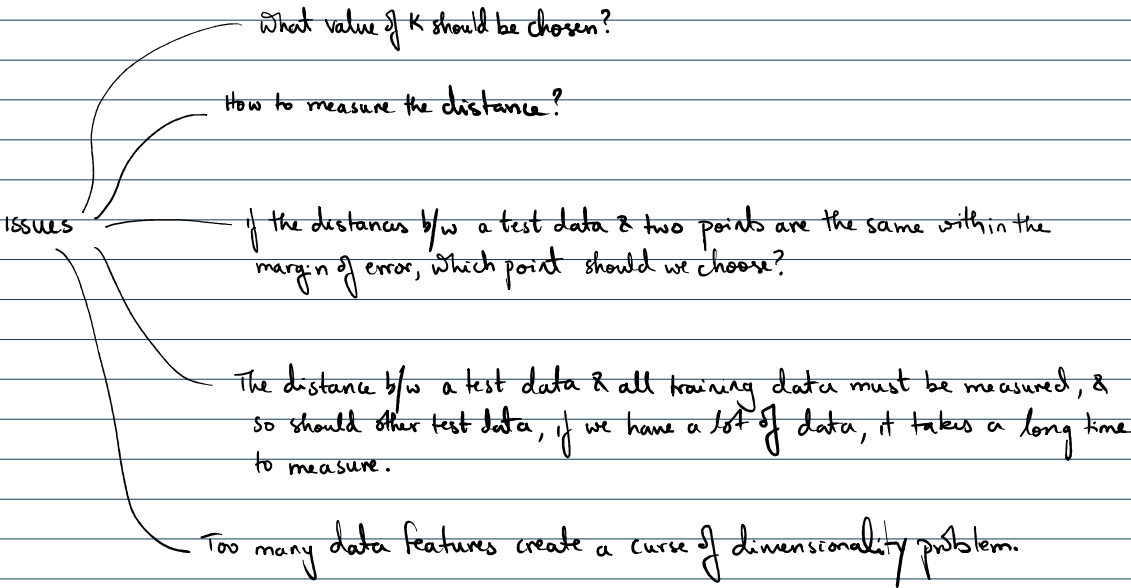 What value of K should be chosen?
How to measure the distance?
Issues
if the distances b/w a test data & two points are the same within the
margin of error, which point should we choose?
The distance b/w a test data & all training data must be measured, &
so should other test data, if we have a lot of data, it takes a long time
to measure.
Too many data features create a curse of dimensionality problem.